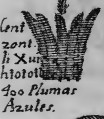 Cent
zont
li Xiu
htototl
400 Plumas
Azules.